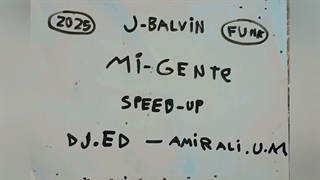 2025 J-BALVIN FUNK
Mi-GeNTe
SPEED-UP
DJ.ED - AMIRALI.U.M